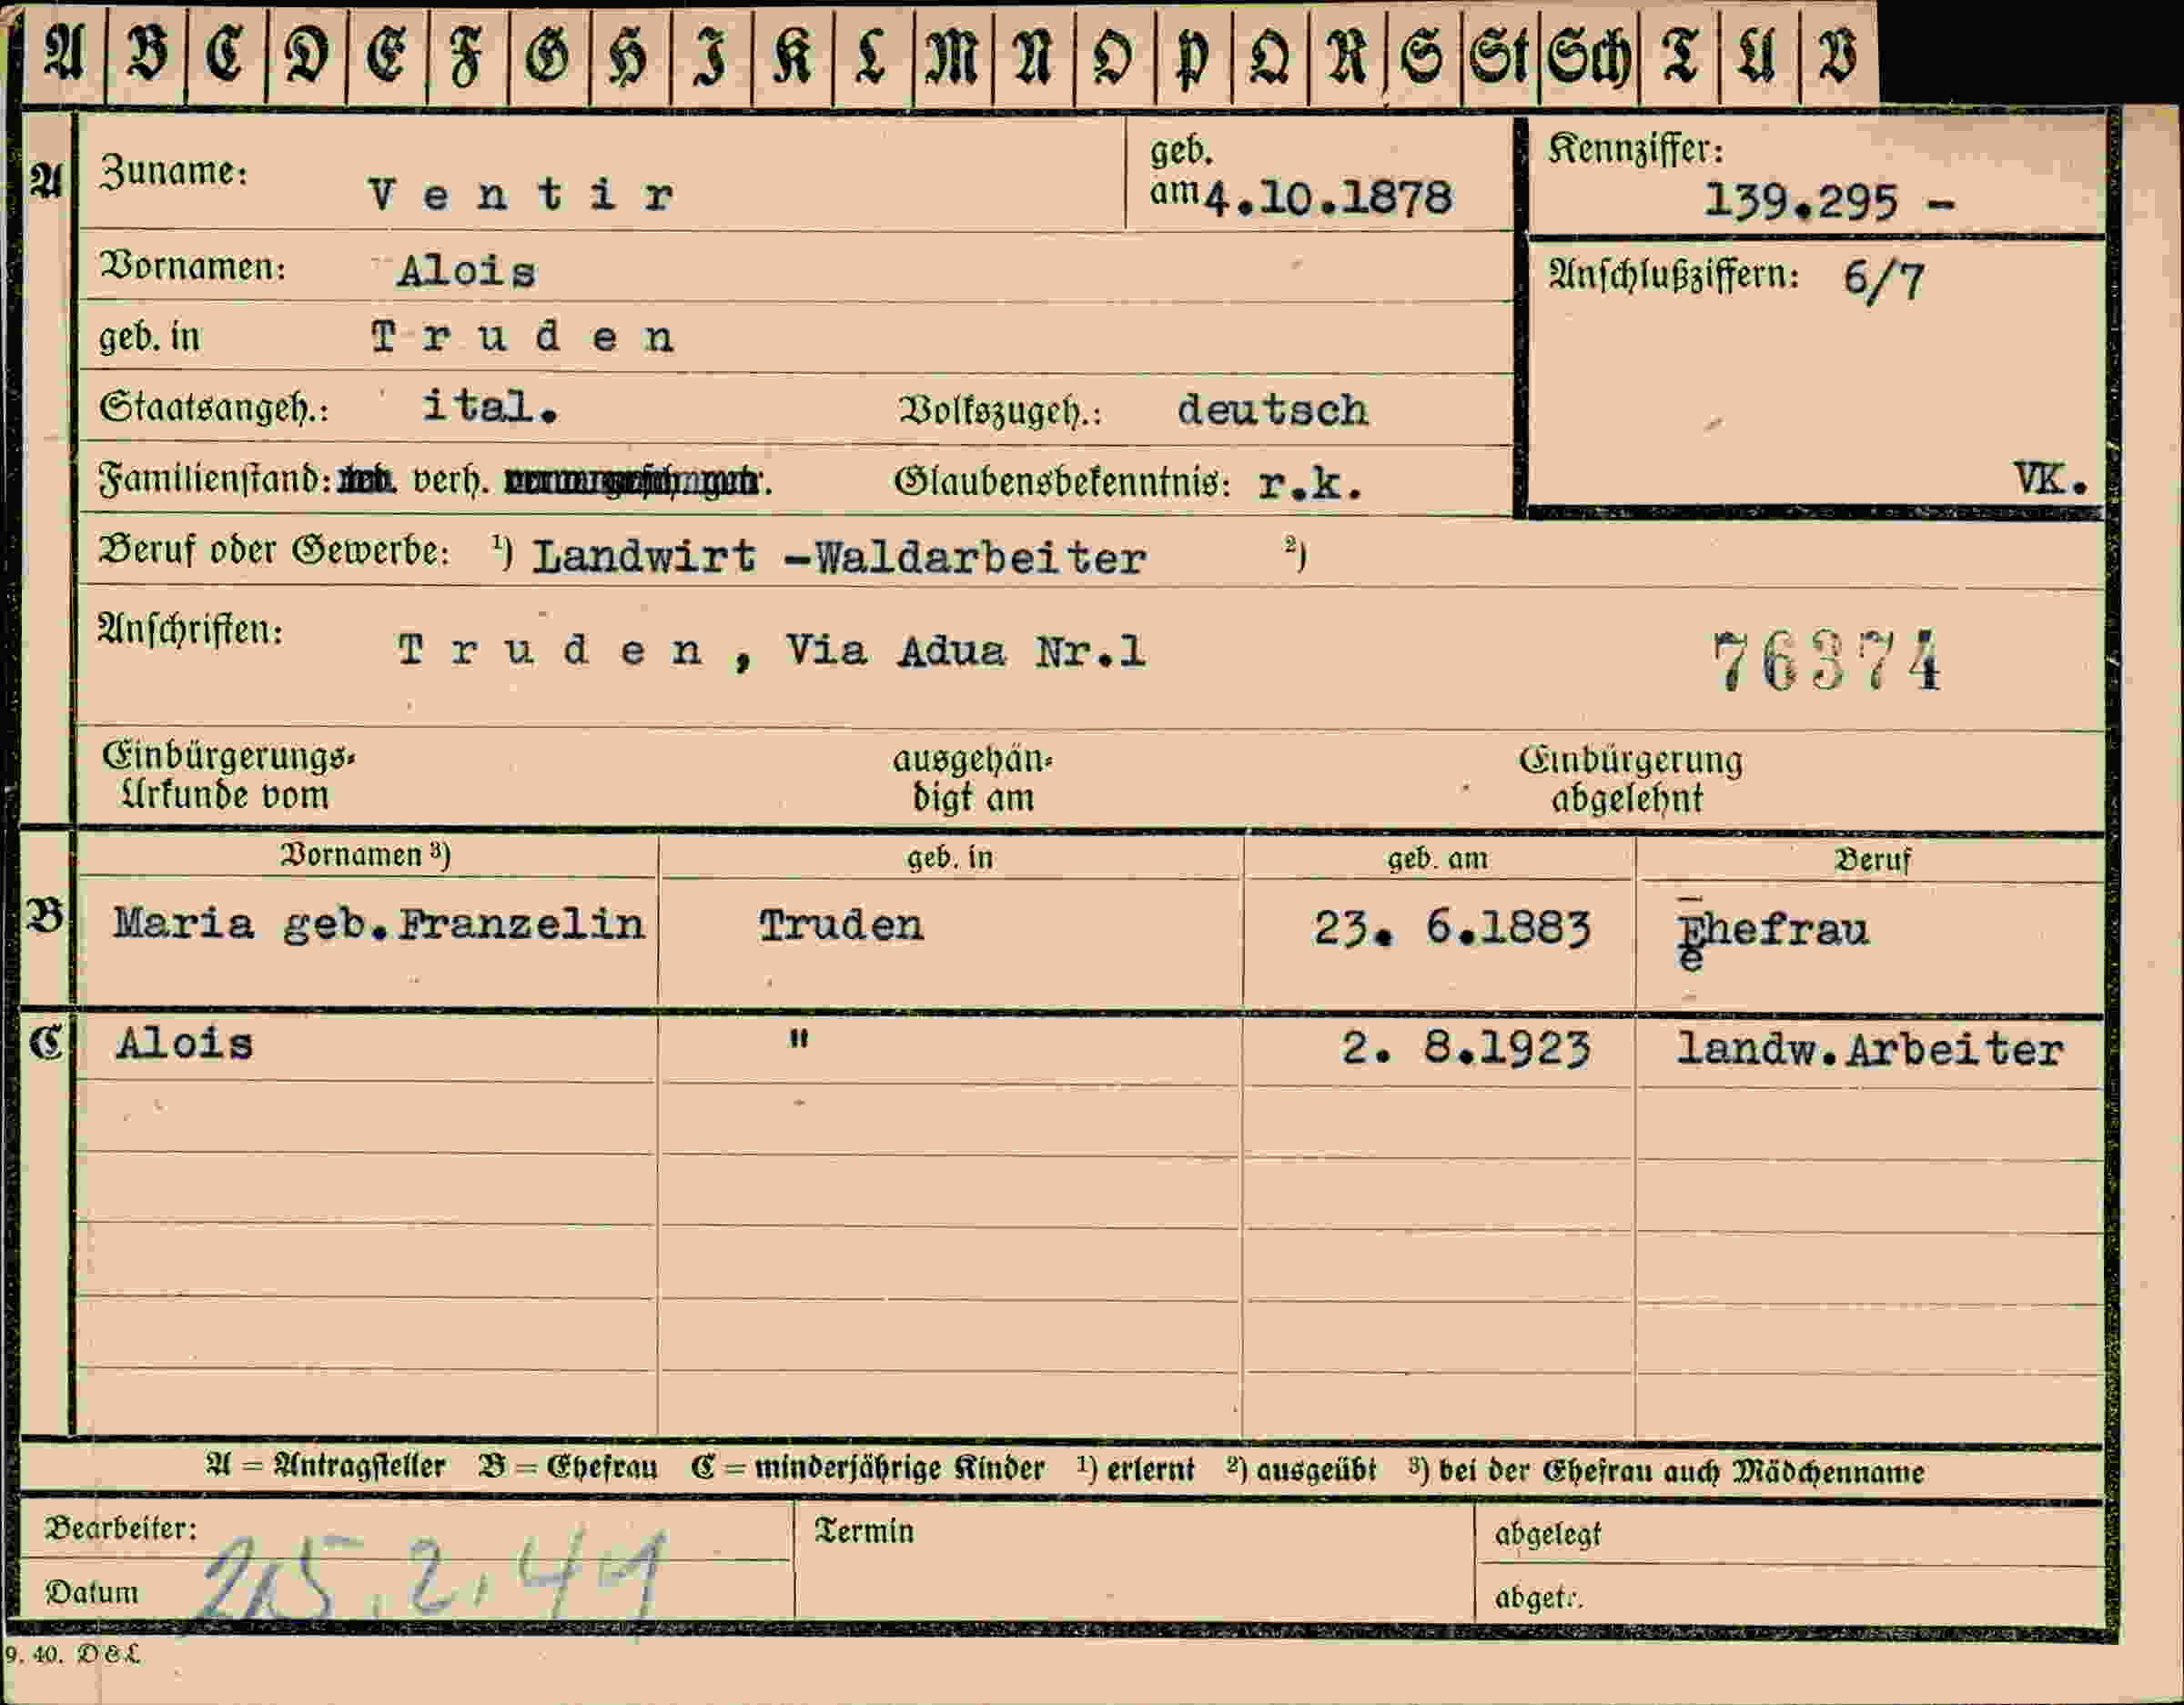 A B C D E F G H I K L M N O P Q R S St Sch T U V
A Zuname: Ventir geb. am 4.10.1878 Kennziffer: 139.295 -
Vornamen: Alois Anschlußziffern: 6/7
geb. in Truden
Staatsangeh.: ital. Volkszugeh.: deutsch
Familienstand: verh. Glaubensbekenntnis: r.k. VK.
Beruf oder Gewerbe: ¹) Landwirt -Waldarbeiter ²)
Anschriften: Truden, Via Adua Nr.1 76374
Einbürgerungs- ausgehän- Einbürgerung
Urkunde vom digt am abgelehnt
Vornamen ³) geb. in geb. am Beruf
B Maria geb.Franzelin Truden 23. 6.1883 Ehefrau
C Alois " 2. 8.1923 landw.Arbeiter
A = Antragsteller B = Ehefrau C = minderjährige Kinder ¹) erlernt ²) ausgeübt ³) bei der Ehefrau auch Mädchenname
Bearbeiter: Termin abgelegt
Datum abgetr.
9. 40. D&L